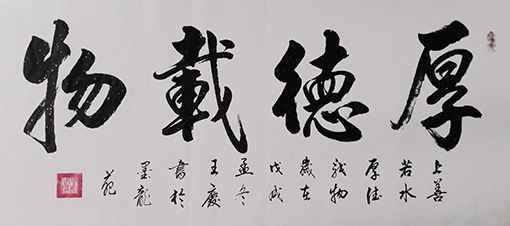 厚德載物
上善
若水
厚德
載物
歲在
戊戌
孟冬
王慶
書於
墨龍
苑